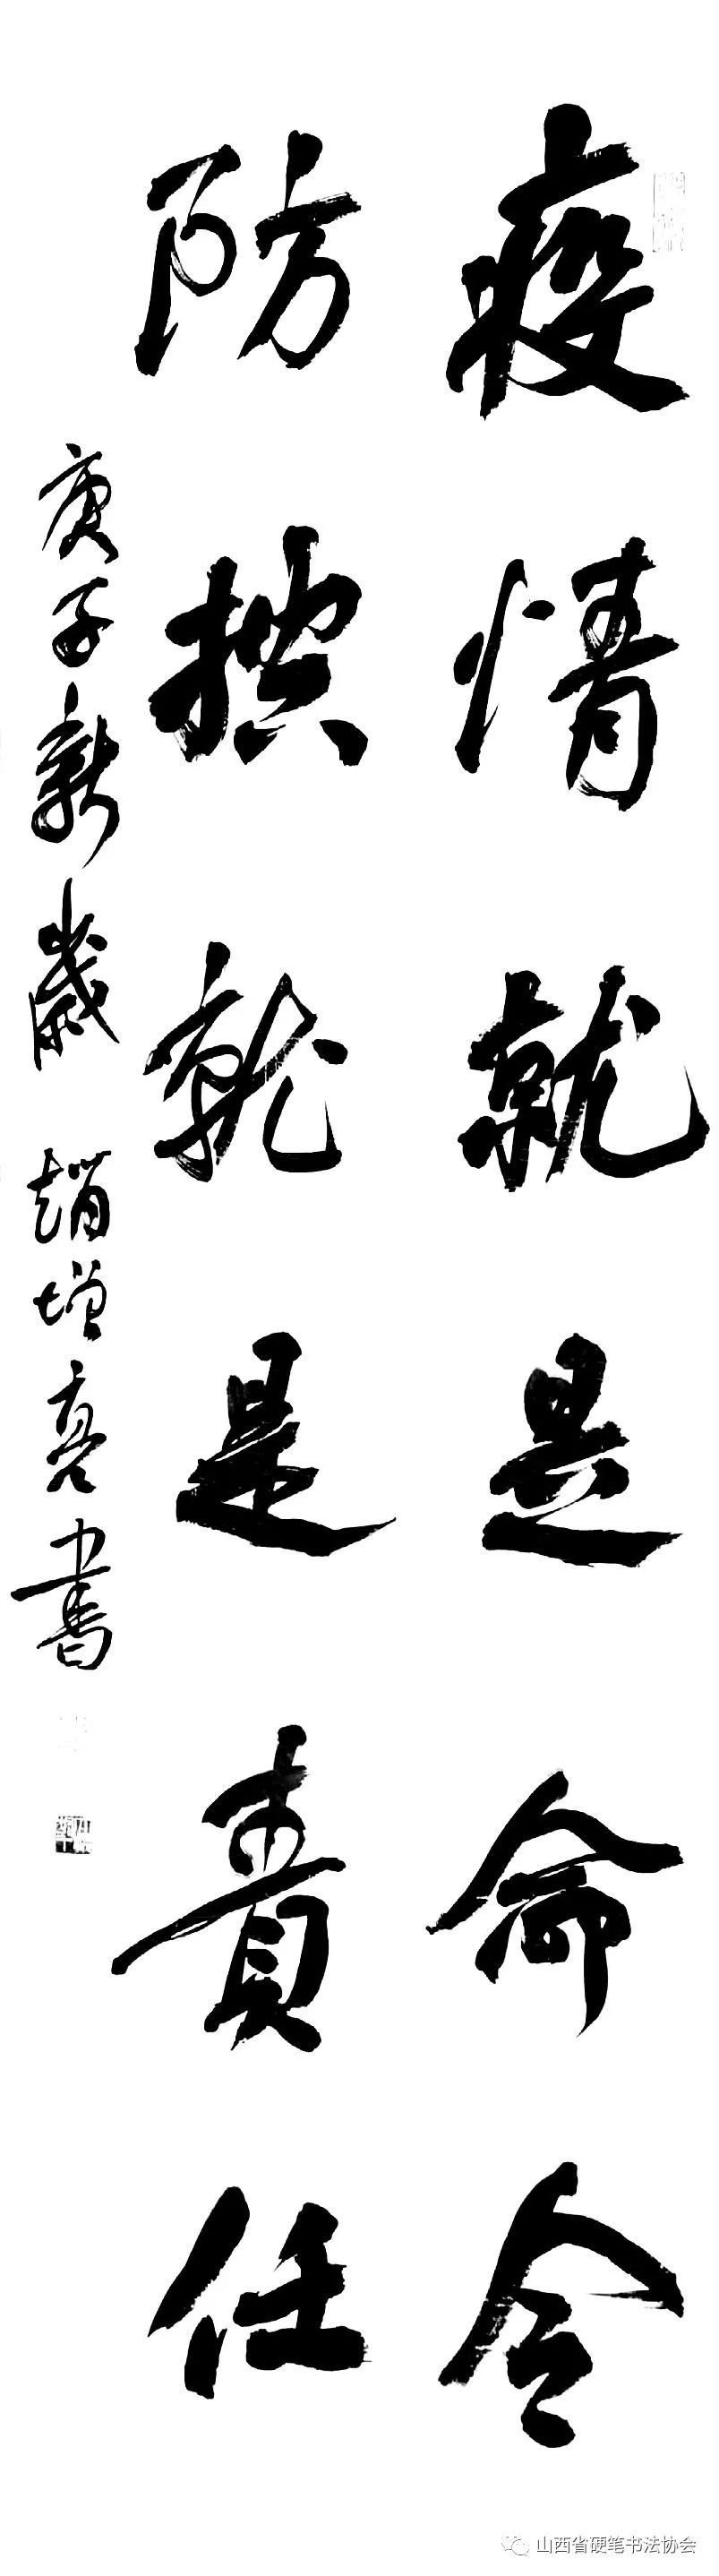 疫情就是命令
防控就是責任
庚子新歲 趙增亮書
山西省硬笔书法协会